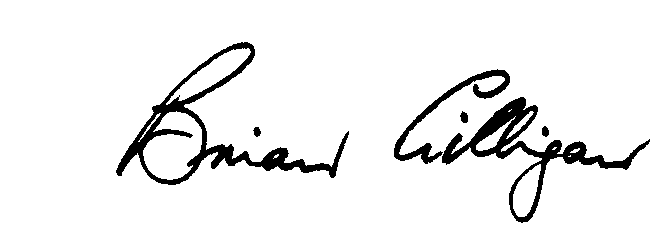 Brian Gilligan